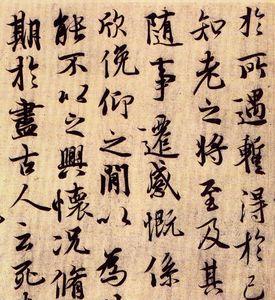 於所遇暫得於己
知老之將至及其
隨事遷感慨係
欣俛仰之閒以為
能不以之興懷況脩
期於盡古人云死